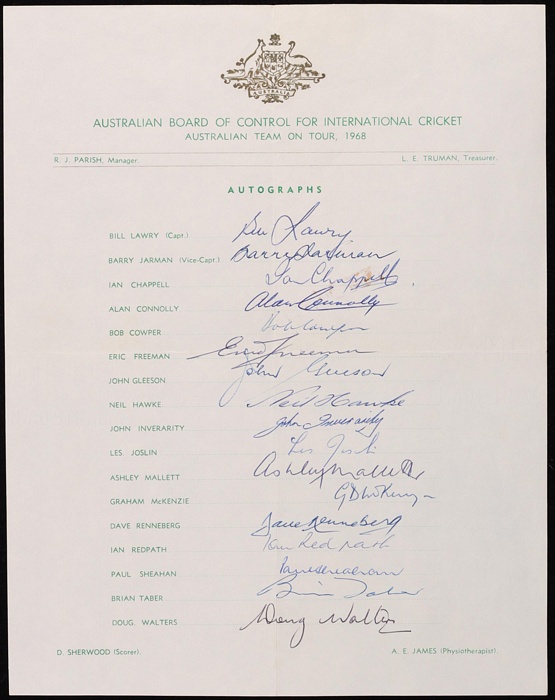 AUSTRALIA
AUSTRALIAN BOARD OF CONTROL FOR INTERNATIONAL CRICKET
AUSTRALIAN TEAM ON TOUR, 1968
R. J. PARISH, Manager. L. E. TRUMAN, Treasurer.
AUTOGRAPHS
BILL LAWRY (Capt.) Bill Lawry
BARRY JARMAN (Vice-Capt.) Barry Jarman
IAN CHAPPELL Ian Chappell
ALAN CONNOLLY Alan Connolly
BOB COWPER Bob Cowper
ERIC FREEMAN Eric Freeman
JOHN GLEESON John Gleeson
NEIL HAWKE Neil Hawke
JOHN INVERARITY John Inverarity
LES. JOSLIN Les Joslin
ASHLEY MALLETT Ashley Mallett
GRAHAM McKENZIE GDMcKenzie
DAVE RENNEBERG Dave Renneberg
IAN REDPATH Ian Redpath
PAUL SHEAHAN Paul Sheahan
BRIAN TABER Brian Taber
DOUG. WALTERS Doug Walters
D. SHERWOOD (Scorer). A. E. JAMES (Physiotherapist).